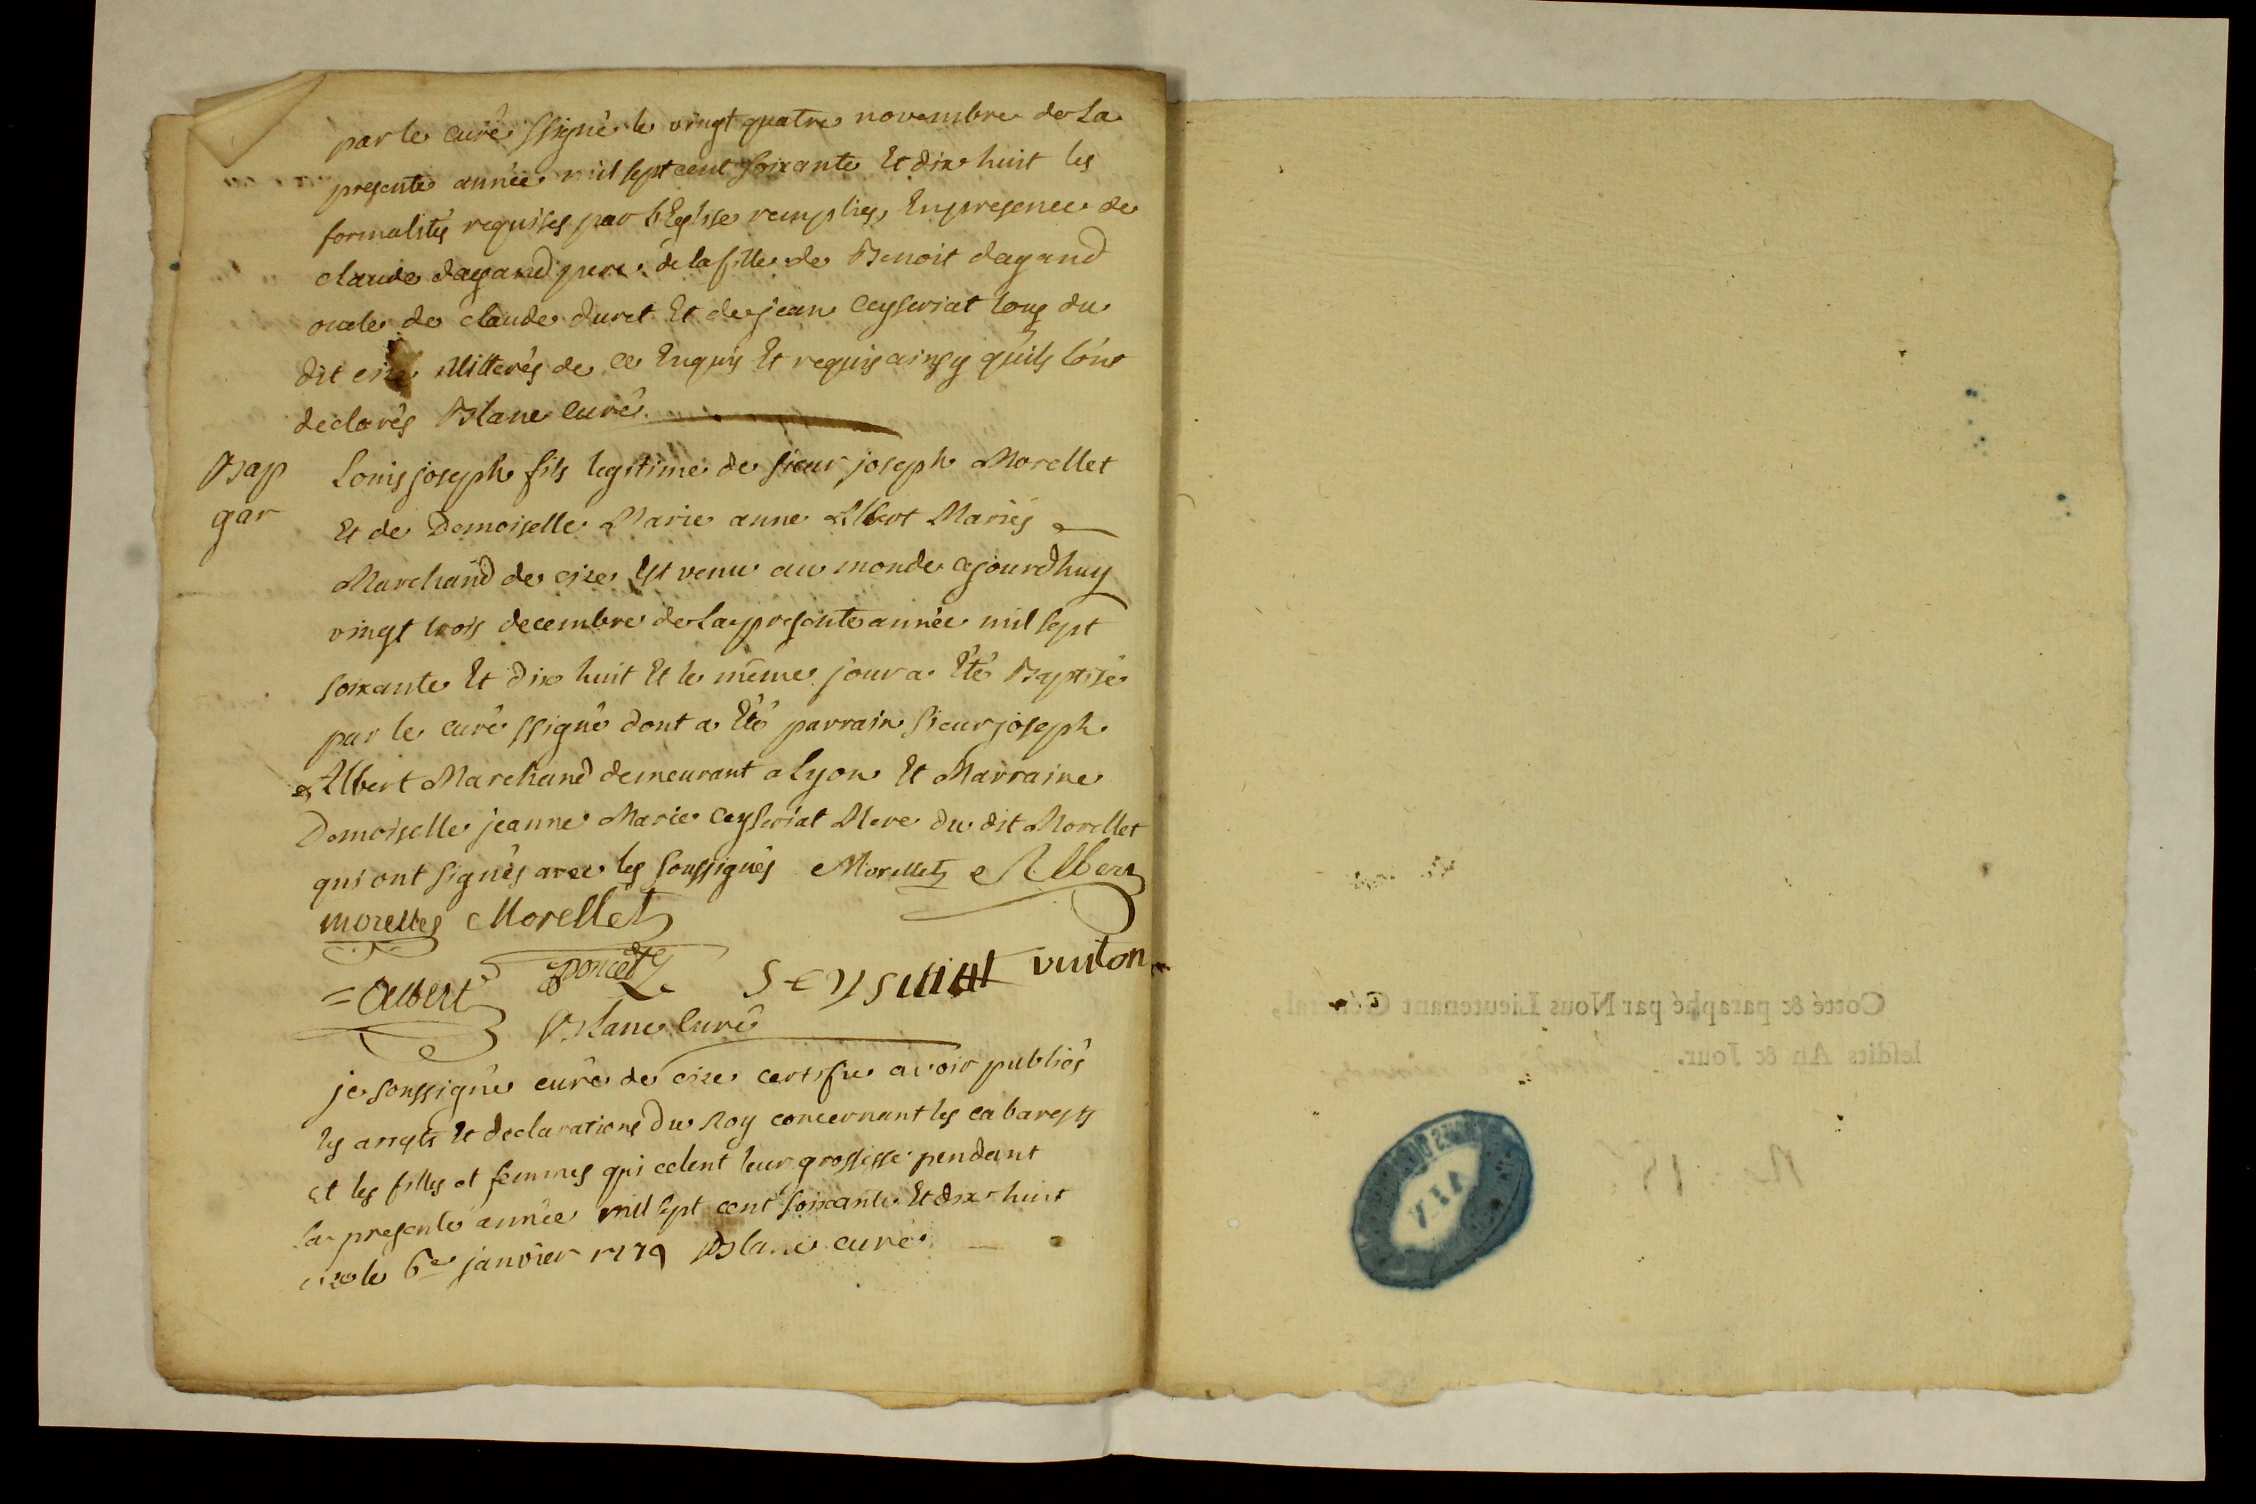 par le curé ssigné le vingt quatre novembre de La
presente année mil sept cent soixante Et dix huit les
formalités requises par L'Eglise remplies, En presence de
claude dagand pere de la fille de Benoit dagand
oncle de claude duret Et de jean Ceyseriat tous du
dit cize illiterés de ce Enquis Et requis ainsy quils l'ont
declarés Blanc Curé
Bap
gar
Louis joseph fils legitime de sieur joseph Morellet
Et de Demoiselle Marie anne Albert Mariés
Marchand de cize Est venu au monde cejourdhuy
vingt trois decembre de La presente année mil sept
soixante Et dix huit Et le même jour a Eté Baptisé
par le curé ssigné dont a Eté parrain sieur joseph
Albert Marchand demeurant a Lyon Et Marraine
Demoiselle jeanne Marie Ceyseriat Mere du dit Morellet
qui ont signés avec les soussignés Morellet Albert
morellet Morellet
Albert poncet Seyseriat vuiton
Blanc Curé
je soussigné curé de cize certifie avoir publiés
les arrests Et declarations du Roy concernant les cabarests
et les filles et femmes qui celent leur grossesse pendant
la presente année mil sept cent soixante Et dix huit
cize le 6e janvier 1779 Blanc curé
Cotté & paraphé par Nous Lieutenant Général,
lesdits An & Jour.
AIN